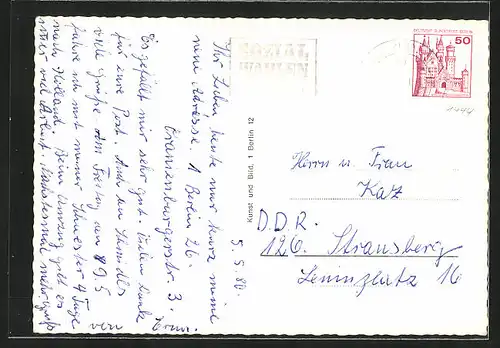 5.5.80.
Ihr Lieben heute nur kurz meine
neue Adresse. 1 Berlin 26.
Oranienburgerstr. 3.
Es gefällt mir sehr gut. Vielen Dank
für eure Post. Auch an
viele Grüße. Am Freitag den 9.5
fahre ich mit meiner Schwester 4 Tage
nach Holland. Beim Umzug gibt es
immer viel Arbeit. Nächstesmal mehr. Gruß
von Erna.
Kunst und Bild, 1 Berlin 12
SOZIAL
WAHLEN
DEUTSCHE BUNDESPOST BERLIN
50
Herrn u. Frau
Katz
D.D.R.
126. Strausberg
Leninplatz 16